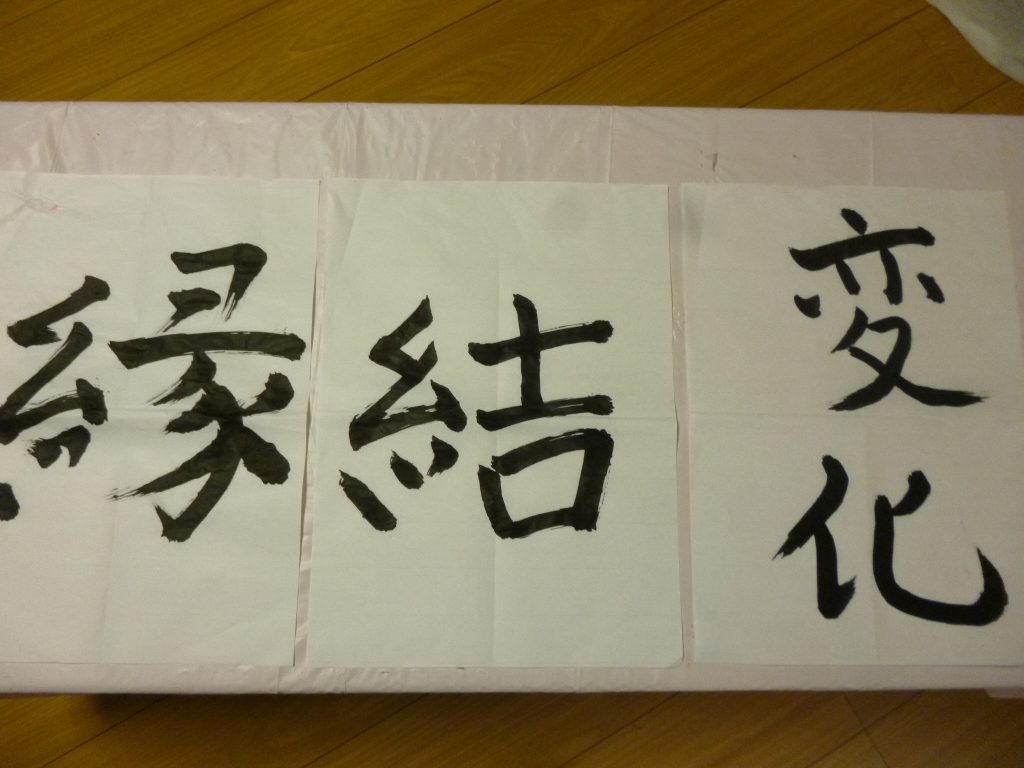 変化
結
縁